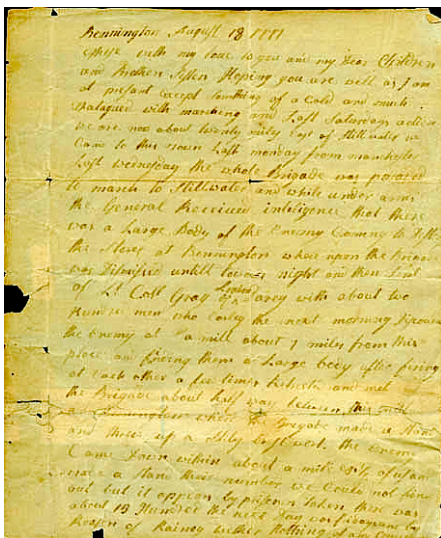 Bennington August 18 1777
with my love to you and my Dear Children
and Brethen Sisters Hoping you are well as I am
at present except somthing of a Cold and much
fatagued with marching and Last Saturdays action
we are now about twenty miles East of Stillwater we
Came to this town Last monday from manchester
Last wednesday the whole Brigade was
to march to Stillwater and while under arms
the General Received inteligence that there
was a Large Body of the Enemy Coming to
the Stores at Bennington where upon the Brigade
was untill toward night and then Sent
of Lt Coll Gray with about two
Hundred men who early the next morning
the Enemy at a mill about 7 miles from this
place and finding them a Large body after firing
at Each other a few times Retreted and met
the Brigade about half way between this
where the Bregade made a Stand
and threw up a Slity the Enemy
Came Down within about a mile of us and
made a Stand there number we Could not find
out but it appears by prisoners taken there was
about 15 Hundred the next Day
Reason of Rainey wether Nothing of any